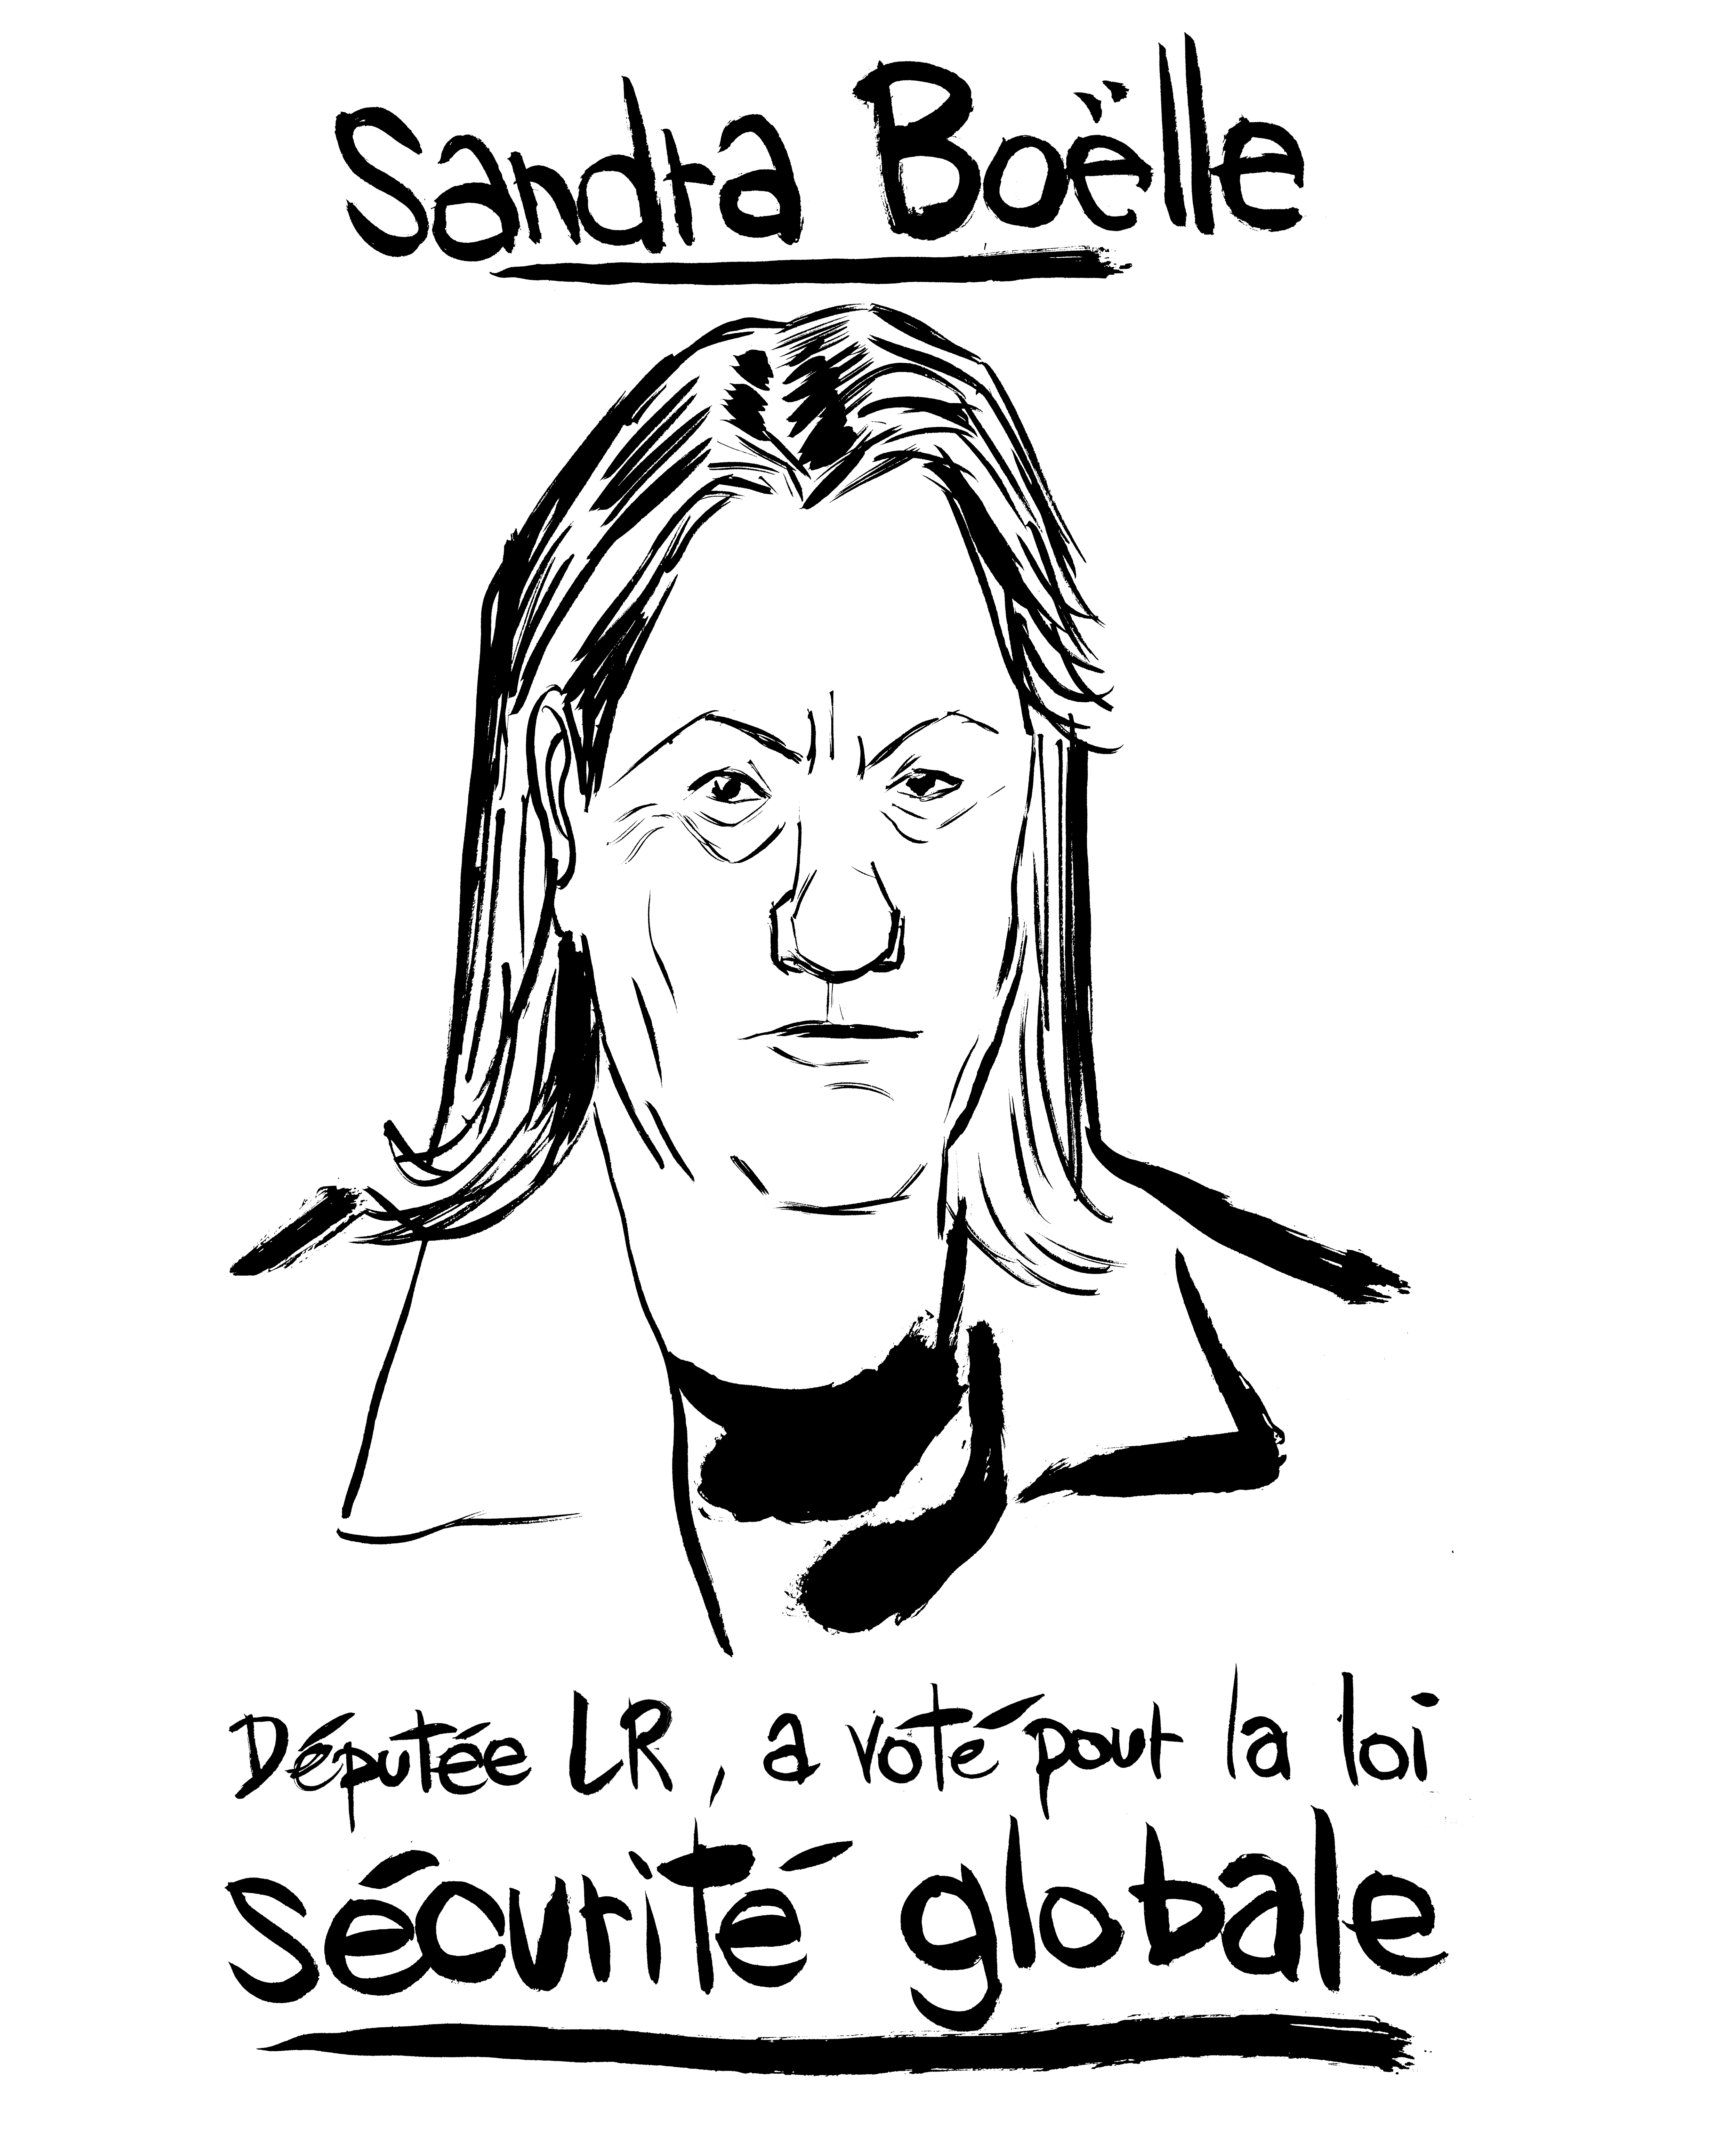 Sandra Boëlle
Députée LR, a voté pour la loi
sécurité globale